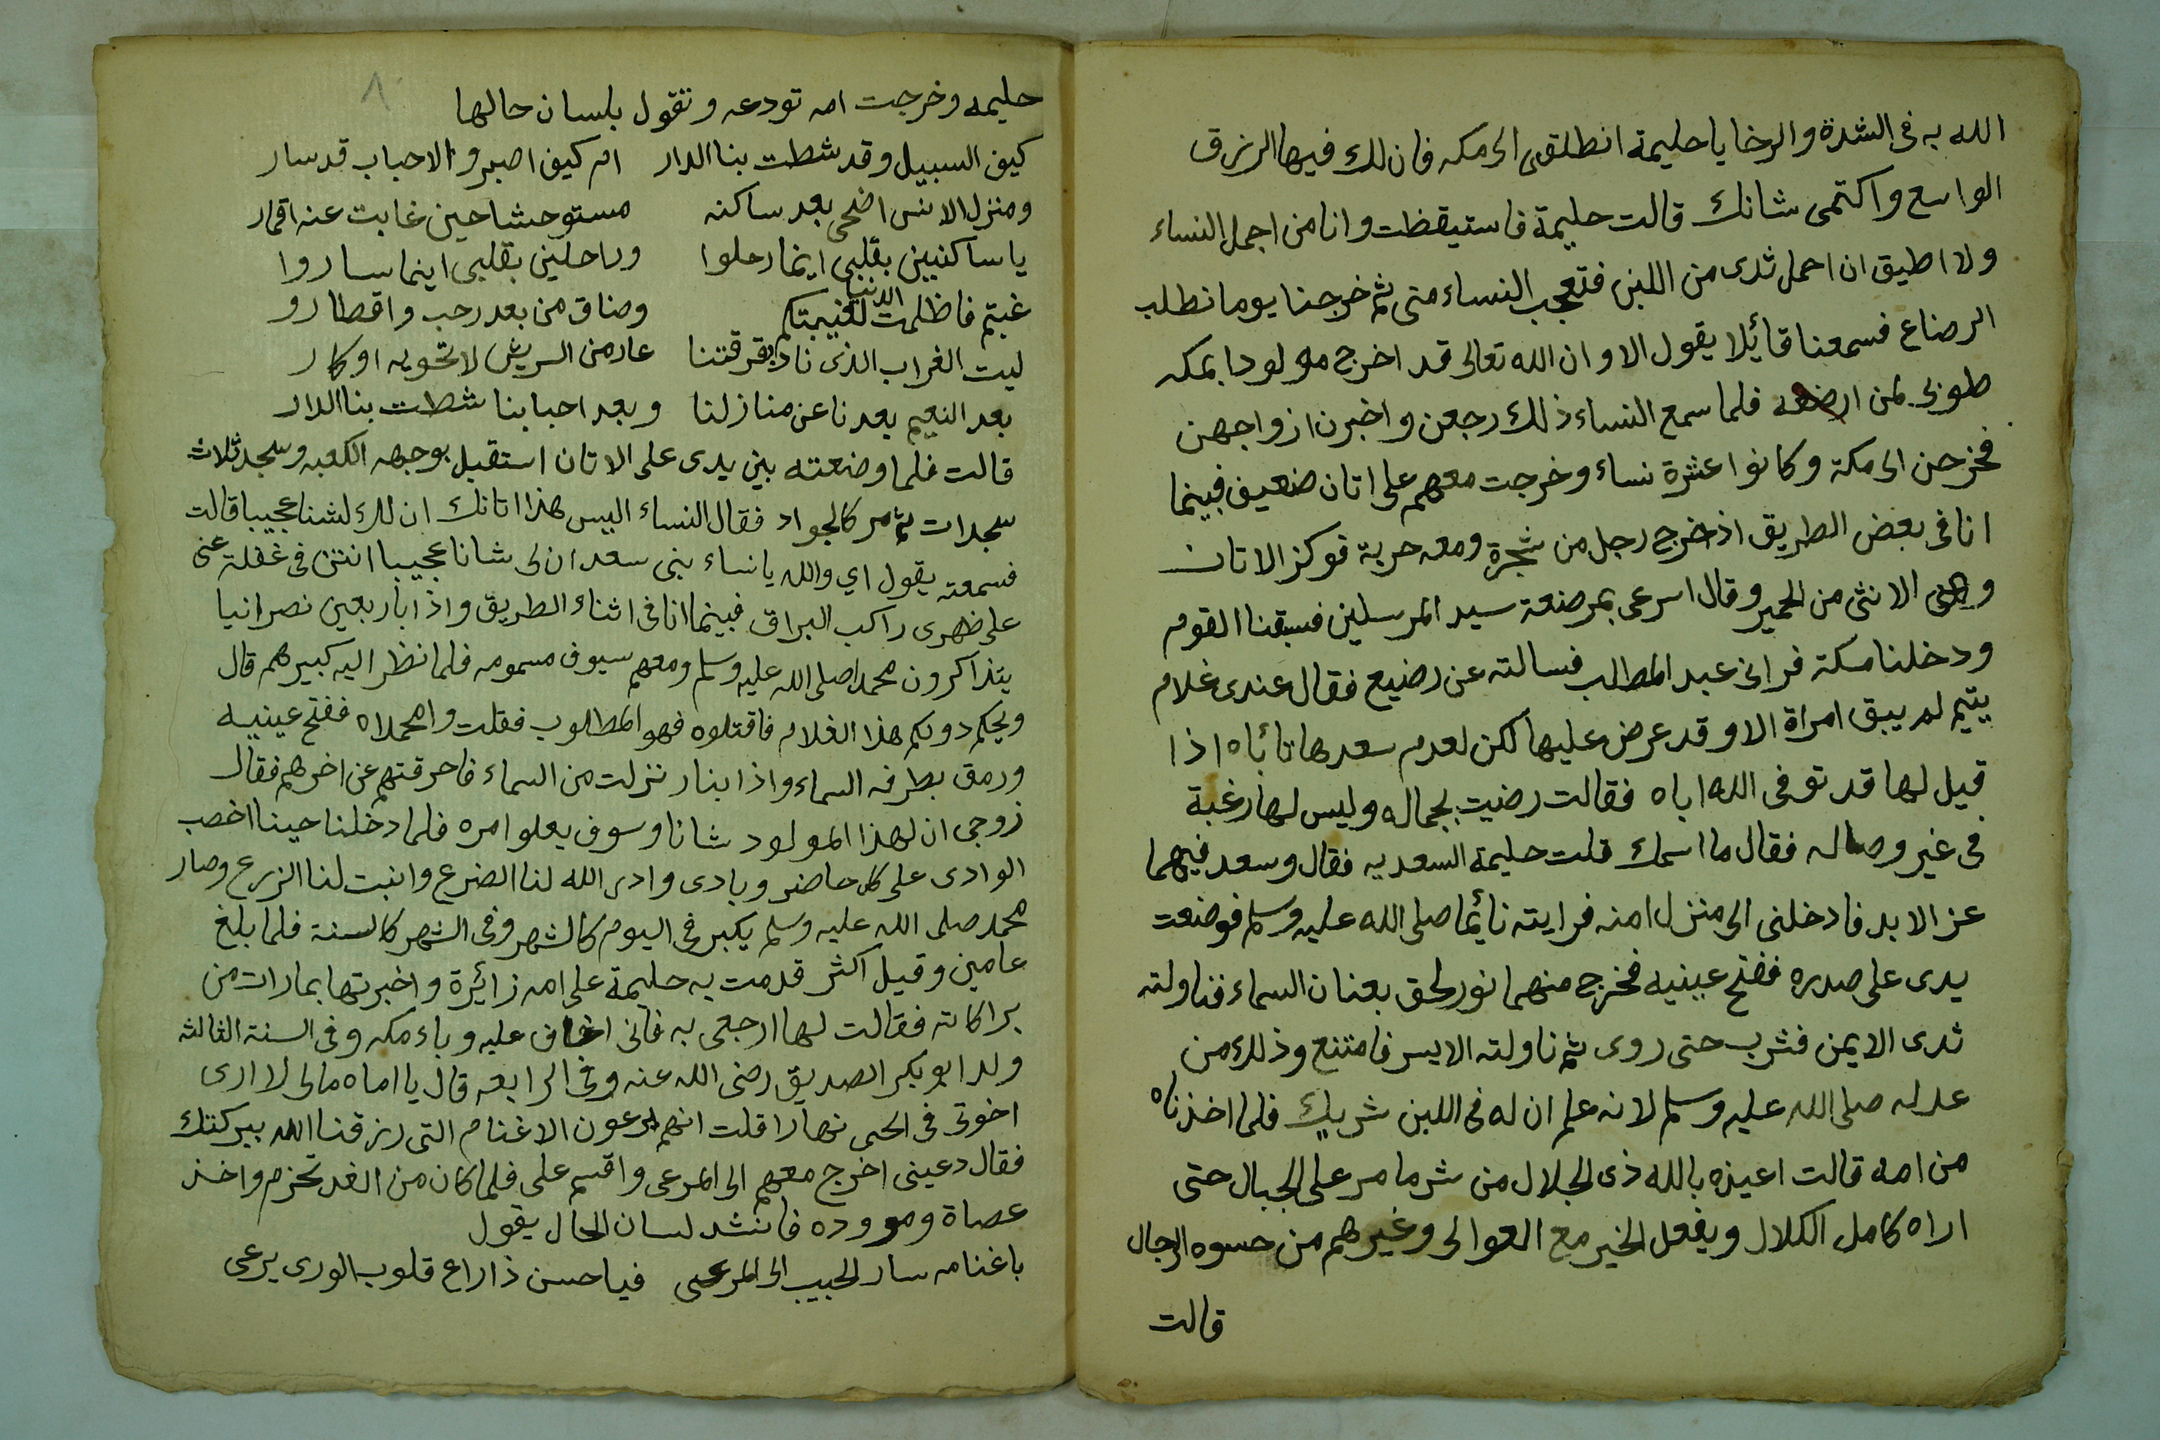 الله به فى الشدة والرخا يا حليمة انطلقى الى مكه فان لك فيها الرزق
الواسع واكتمى شانك قالت حليمة فاستيقظت وانا من اجمل النساء
ولا اطيق ان احمل ثدى من اللبن فتعجب النساء منى ثم خرجنا يوما نطلب
الرضاع فسمعنا قائلا يقول الا وان الله تعالى قد اخرج مولودا بمكه
طوبى لمن ارضعه فلما سمع النساء ذلك رجعن واخبرن ازواجهن
فخرجن الى مكة وكانوا عشرة نساء وخرجت معهم على اتان ضعيف فبينما
انا فى بعض الطريق اذ خرج رجل من شجرة ومعه حربة فوكز الاتان
وهى الانثى من الحمير وقال اسرعى بمرضعة سيد المرسلين فسبقنا القوم
ودخلنا مكة فرانى عبد المطالب فسالته عن رضيع فقال عندى غلام
يتيم لم يبق امراة الا وقد عرض عليها لكن لعدم سعدها تاباه اذا
قيل لها قد توفى الله اباه فقالت رضيت بجماله وليس لها رغبة
فى غير وصاله فقال ما اسمك قلت حليمة السعديه فقال وسعد فيهما
عز الابد فادخلنى الى منزل امنه فرايته نائما صلى الله عليه وسلم فوضعت
يدى على صدره ففتح عينيه فخرج منهما نور لحق بعنان السماء فناولته
ثدى الايمن فشرب حتى روى ثم ناولته الايسر فامتنع وذلك من
عدله صلى الله عليه وسلم لانه علم ان له فى اللبن شريك فلما اخذناه
من امه قالت اعيذه بالله ذى الجلال من شر ما مر على الجبال حتى
اراه كامل الكلال ويفعل الخير مع العوالى وغيرهم من حسوه الرجال
قالت
٨
حليمه وخرجت امه تودعه وتقول بلسان حالها
كيف السبيل وقد شطت بنا الدار ام كيف اصبر والاحباب قد سار
ومنزل الانس اضحى بعد ساكنه مستوحشا حين غابت عنه اقمار
يا ساكنيين بقلبى اينما رحلوا وراحلين بقلبى اينما ساروا
غبتم فاظلمت الدنيا لغيبتكم وضاق من بعد رحب واقطارو
ليت الغراب الذى نادى بفرقتنا عار من الريش لا تحويه اوكار
بعد النعيم بعدنا عن منازلنا وبعد احبابنا شطت بنا الدار
قالت فلما وضعته بين يدى على الاتان استقبل بوجهه الكعبه وسجد ثلاث
سجدات ثم مر كالجواد فقال النساء اليس هذا اتانك ان لك لشنا عجيبا قالت
فسمعته يقول اي والله يا نساء بنى سعد ان لى شانا عجيبا انتن فى غفلة عنى
على ظهرى راكب البراق فبينما انا فى اثناء الطريق واذا باربعين نصرانيا
يتذاكرون محمدا صلى الله عليه وسلم ومعهم سيوف مسمومه فلما نظر اليه كبيرهم قال
ويحكم دونكم هذا الغلام فاقتلوه فهو المطلوب فقلت وا محمداه ففتح عينيه
ورمق بطرفه السماء واذا بنار نزلت من السماء فاحرقتهم عن اخرهم فقال
زوجى ان لهذا المولود شانا وسوف يعلوا مره فلما دخلنا حينا اخصب
الوادى على كل حاضر وبادى وادر الله لنا الضرع وانبت لنا الزرع وصار
محمد صلى الله عليه وسلم يكبر فى اليوم كالشهر وفى الشهر كالسنة فلما بلغ
عامين وقيل اكثر قدمت به حليمة على امه زائرة واخبرتها بمارات من
براكاته فقالت لها ارجعى به فانى اخاف عليه وباء مكه وفى السنة الثالثه
ولد ابو بكر الصديق رضى الله عنه وفى الرابعه قال يا اماه مالى لا ارى
اخوتى فى الحى نهارا قلت انهم يرعون الاغنام التى رزقنا الله ببركتك
فقال دعينى اخرج معهم الى المرعى واقسم على فلما كان من الغد تحزم واخذ
عصاة ومووده فانشد لسان الحال يقول
باغنامه سار الحبيب الى المرعى فيا حسن ذا راع قلوب الورى يرعى